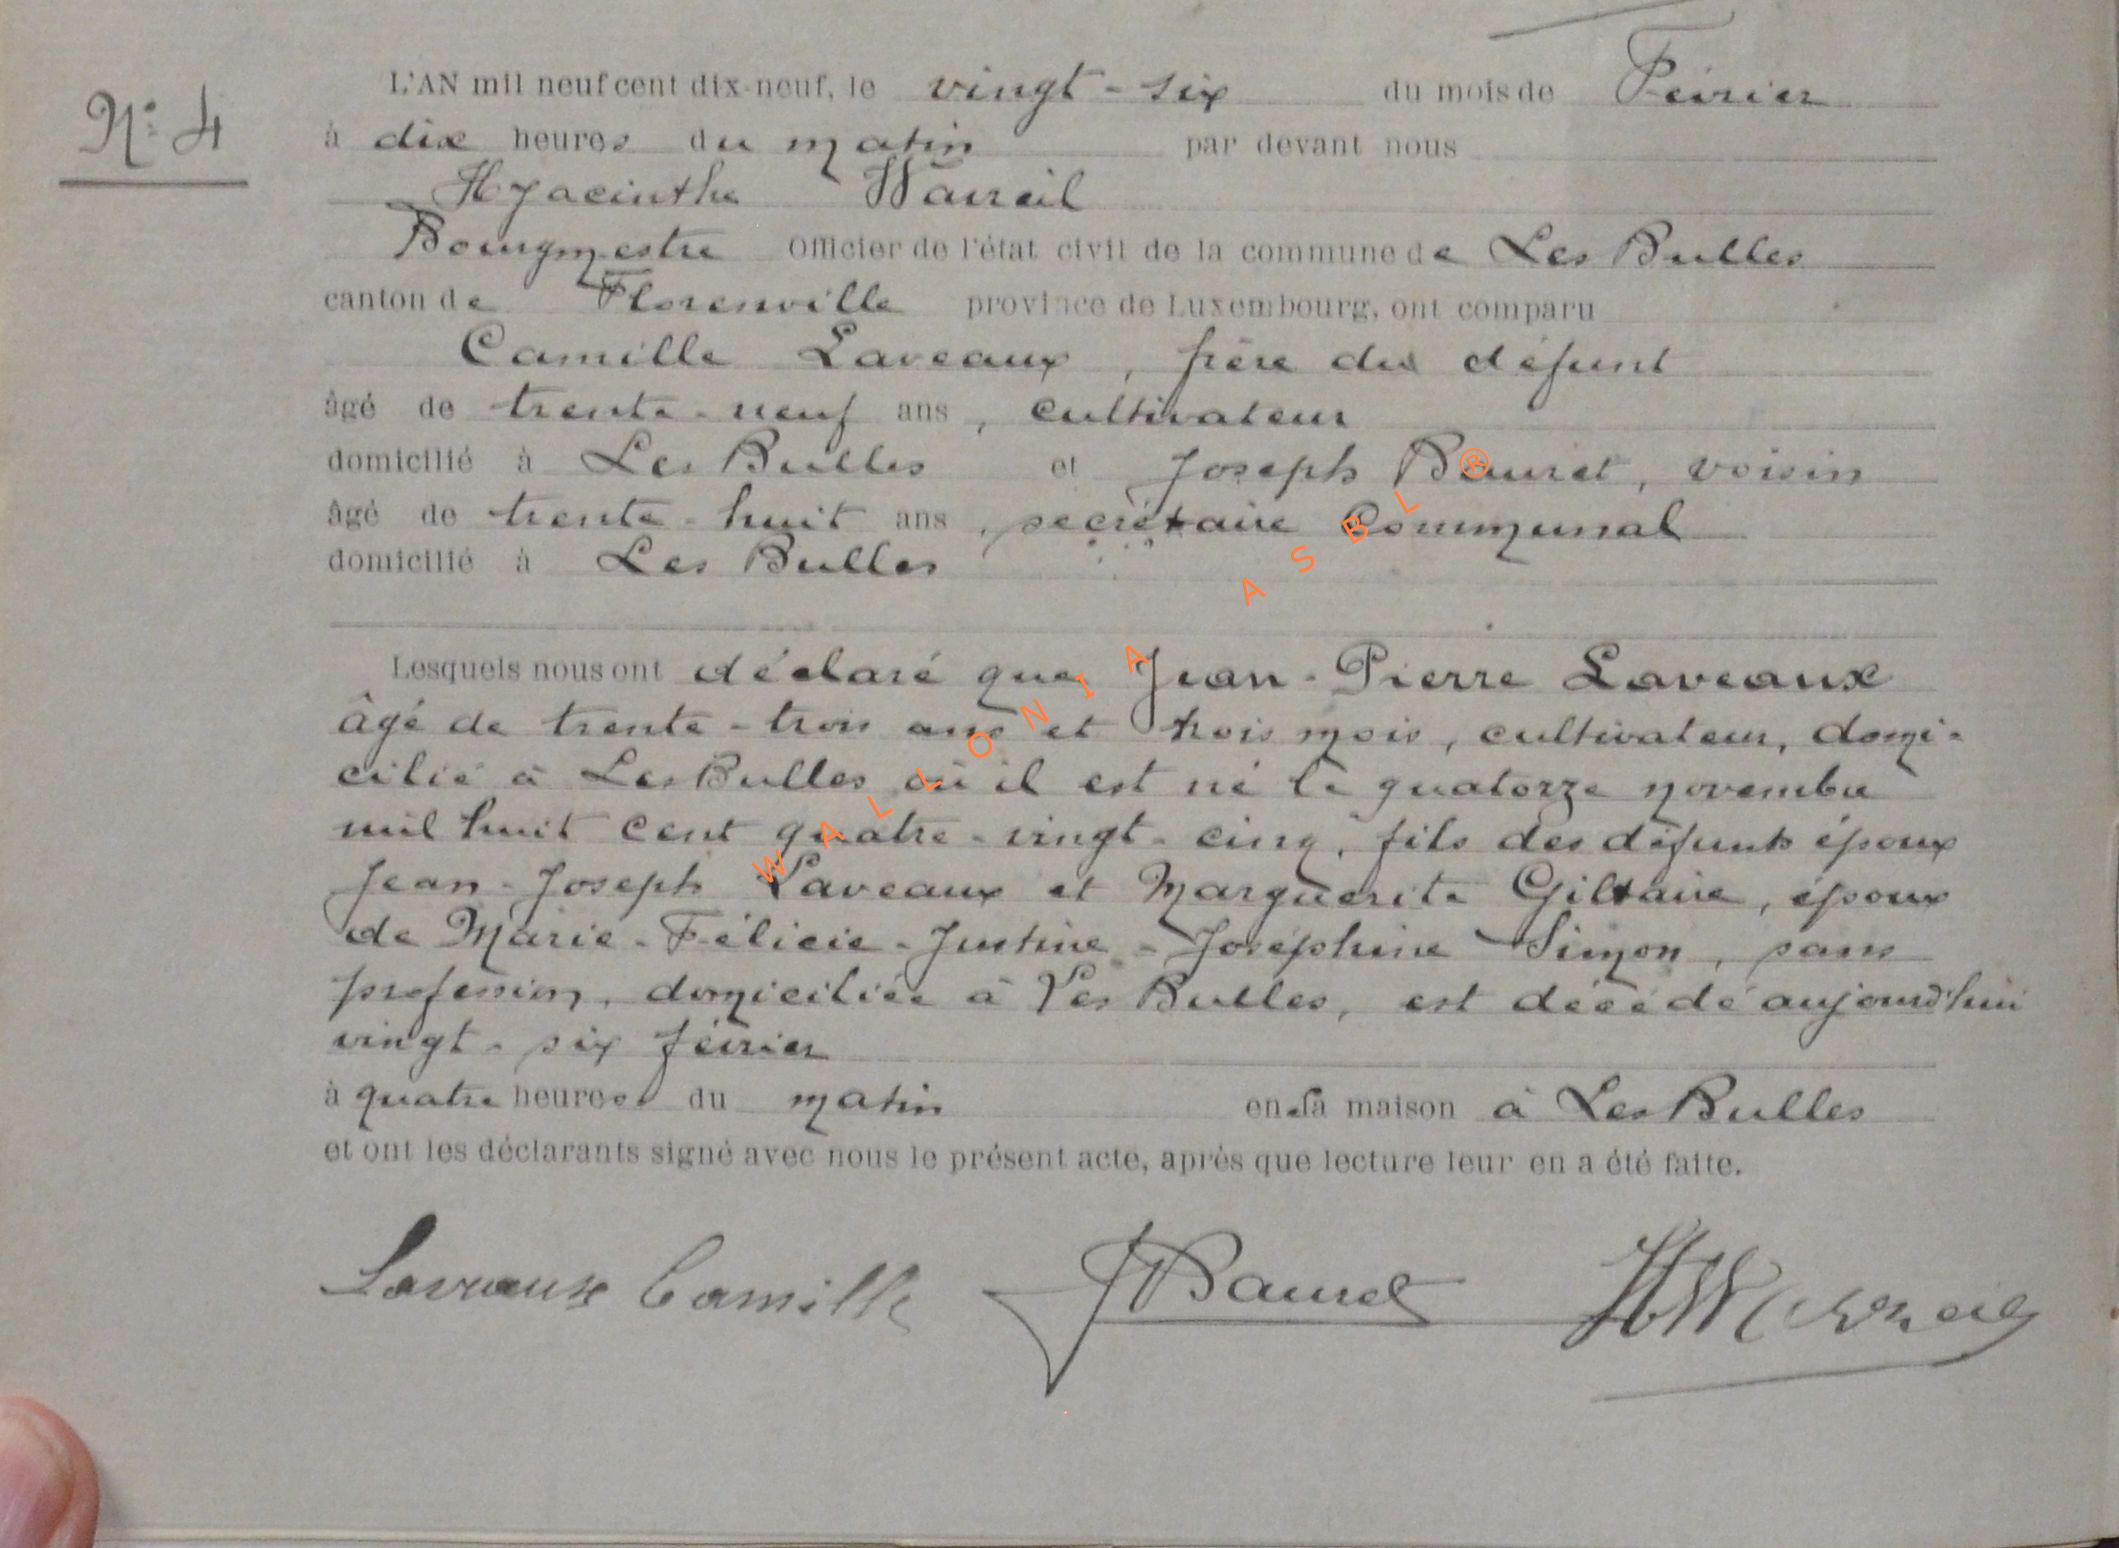 N° 4
L'AN mil neuf cent dix-neuf, le vingt-six du mois de Février
à dix heures du matin par devant nous
Hyacinthe Wavreil
Bourgmestre Officier de l'état civil de la commune de Les Bulles
canton de Florenville province de Luxembourg, ont comparu
Camille Laveaux, frère du défunt
âgé de trente-neuf ans, cultivateur
domicilié à Les Bulles et Joseph Bauret, voisin
âgé de trente-huit ans, secrétaire Communal
domicilié à Les Bulles
Lesquels nous ont déclaré que Jean-Pierre Laveaux
âgé de trente-trois ans et trois mois, cultivateur, domi-
cilié à Les Bulles où il est né le quatorze novembre
mil huit cent quatre-vingt-cinq, fils des défunts époux
Jean-Joseph Laveaux et Marguerite Giltaire, époux
de Marie-Félicie-Justine-Joséphine Simon, sans
profession, domiciliée à Les Bulles, est décédé aujourd'hui
vingt-six février
à quatre heures du matin en sa maison à Les Bulles
et ont les déclarants signé avec nous le présent acte, après que lecture leur en a été faite.
Laveaux Camille JBauret
WALLONIA ASBL ®